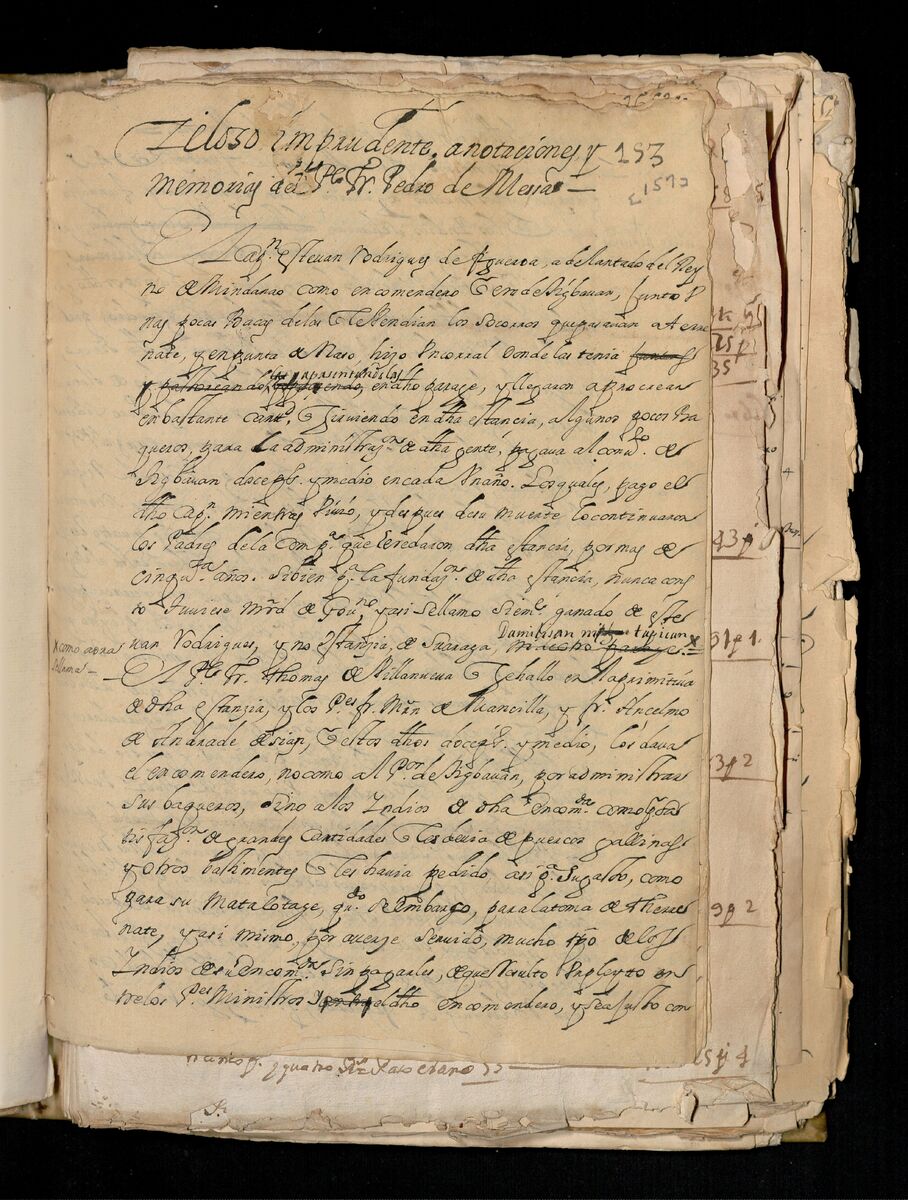 Zeloso imprudente. anotaciones y
memorias del Pe Fr. Pedro de Mesa —
153
[1593]
Al Capn Estevan Rodrigues de figueroa, adelantado del Rey
no de Mindanao como encomendero q era de Sigbauan, junto V
nas pocas Bacas de los q le Vendian los Socorros que pasauan a Terre
nate, y en punta de Naso, hizo Vn corral donde las tenia
apasentandolas en dho paraje, y llegaron a procrear
en bastante cantd. q Tuuiendo en dha estancia, algunos pocos Ba
queros, para la administraon de dha gente, pagaua al convto. de
Sigbauan doce ps. y medio en cada Vn año. Los quales, pago el
dho Capn. mientras Viuió, y despues de su muerte lo continuaron
los Padres de la Compa. que eredaron dha estancia, por mas de
cinquta años. Si bien pa la fundaon. de dha estancia, nunca cons
to tuuiese Mrd de Gouno, y asi se llamo Siemе. ganado de este
Damilisan tupican
uan Rodrigues, y no estanzia, de Suaraga,
x como aora
se llama —
El Pe Fr. Thomas de Villanueva q se hallo en la primitiua
de dha estanzia, y los Pes fr. Mrn de Mancilla, y fr. Anselmo
de Andrade desian, q estos dhos doce ps. y medio, los daua
el encomendero, no como al Por de Sigbauan, por administrar
sus baqueros, sino a los Indios de dha encomda. como
tisfaon de grandes Cantidades q les deuia de puercos gallinas
y otros bastimentos q les hauia pedido asi pa Su gasto, como
para su Matalotage, qdo se embarco, para la toma de Therre
nate, y asi mismo, por auerse seruido, mucho tpo de los
Indios de su Encomda sin pagarles, de que resulto Vn pleyto en
tre los Pes Ministros al dho encomendero, y sea justo con
43p
91p1.
93p2
9p2
5p4
y quatro